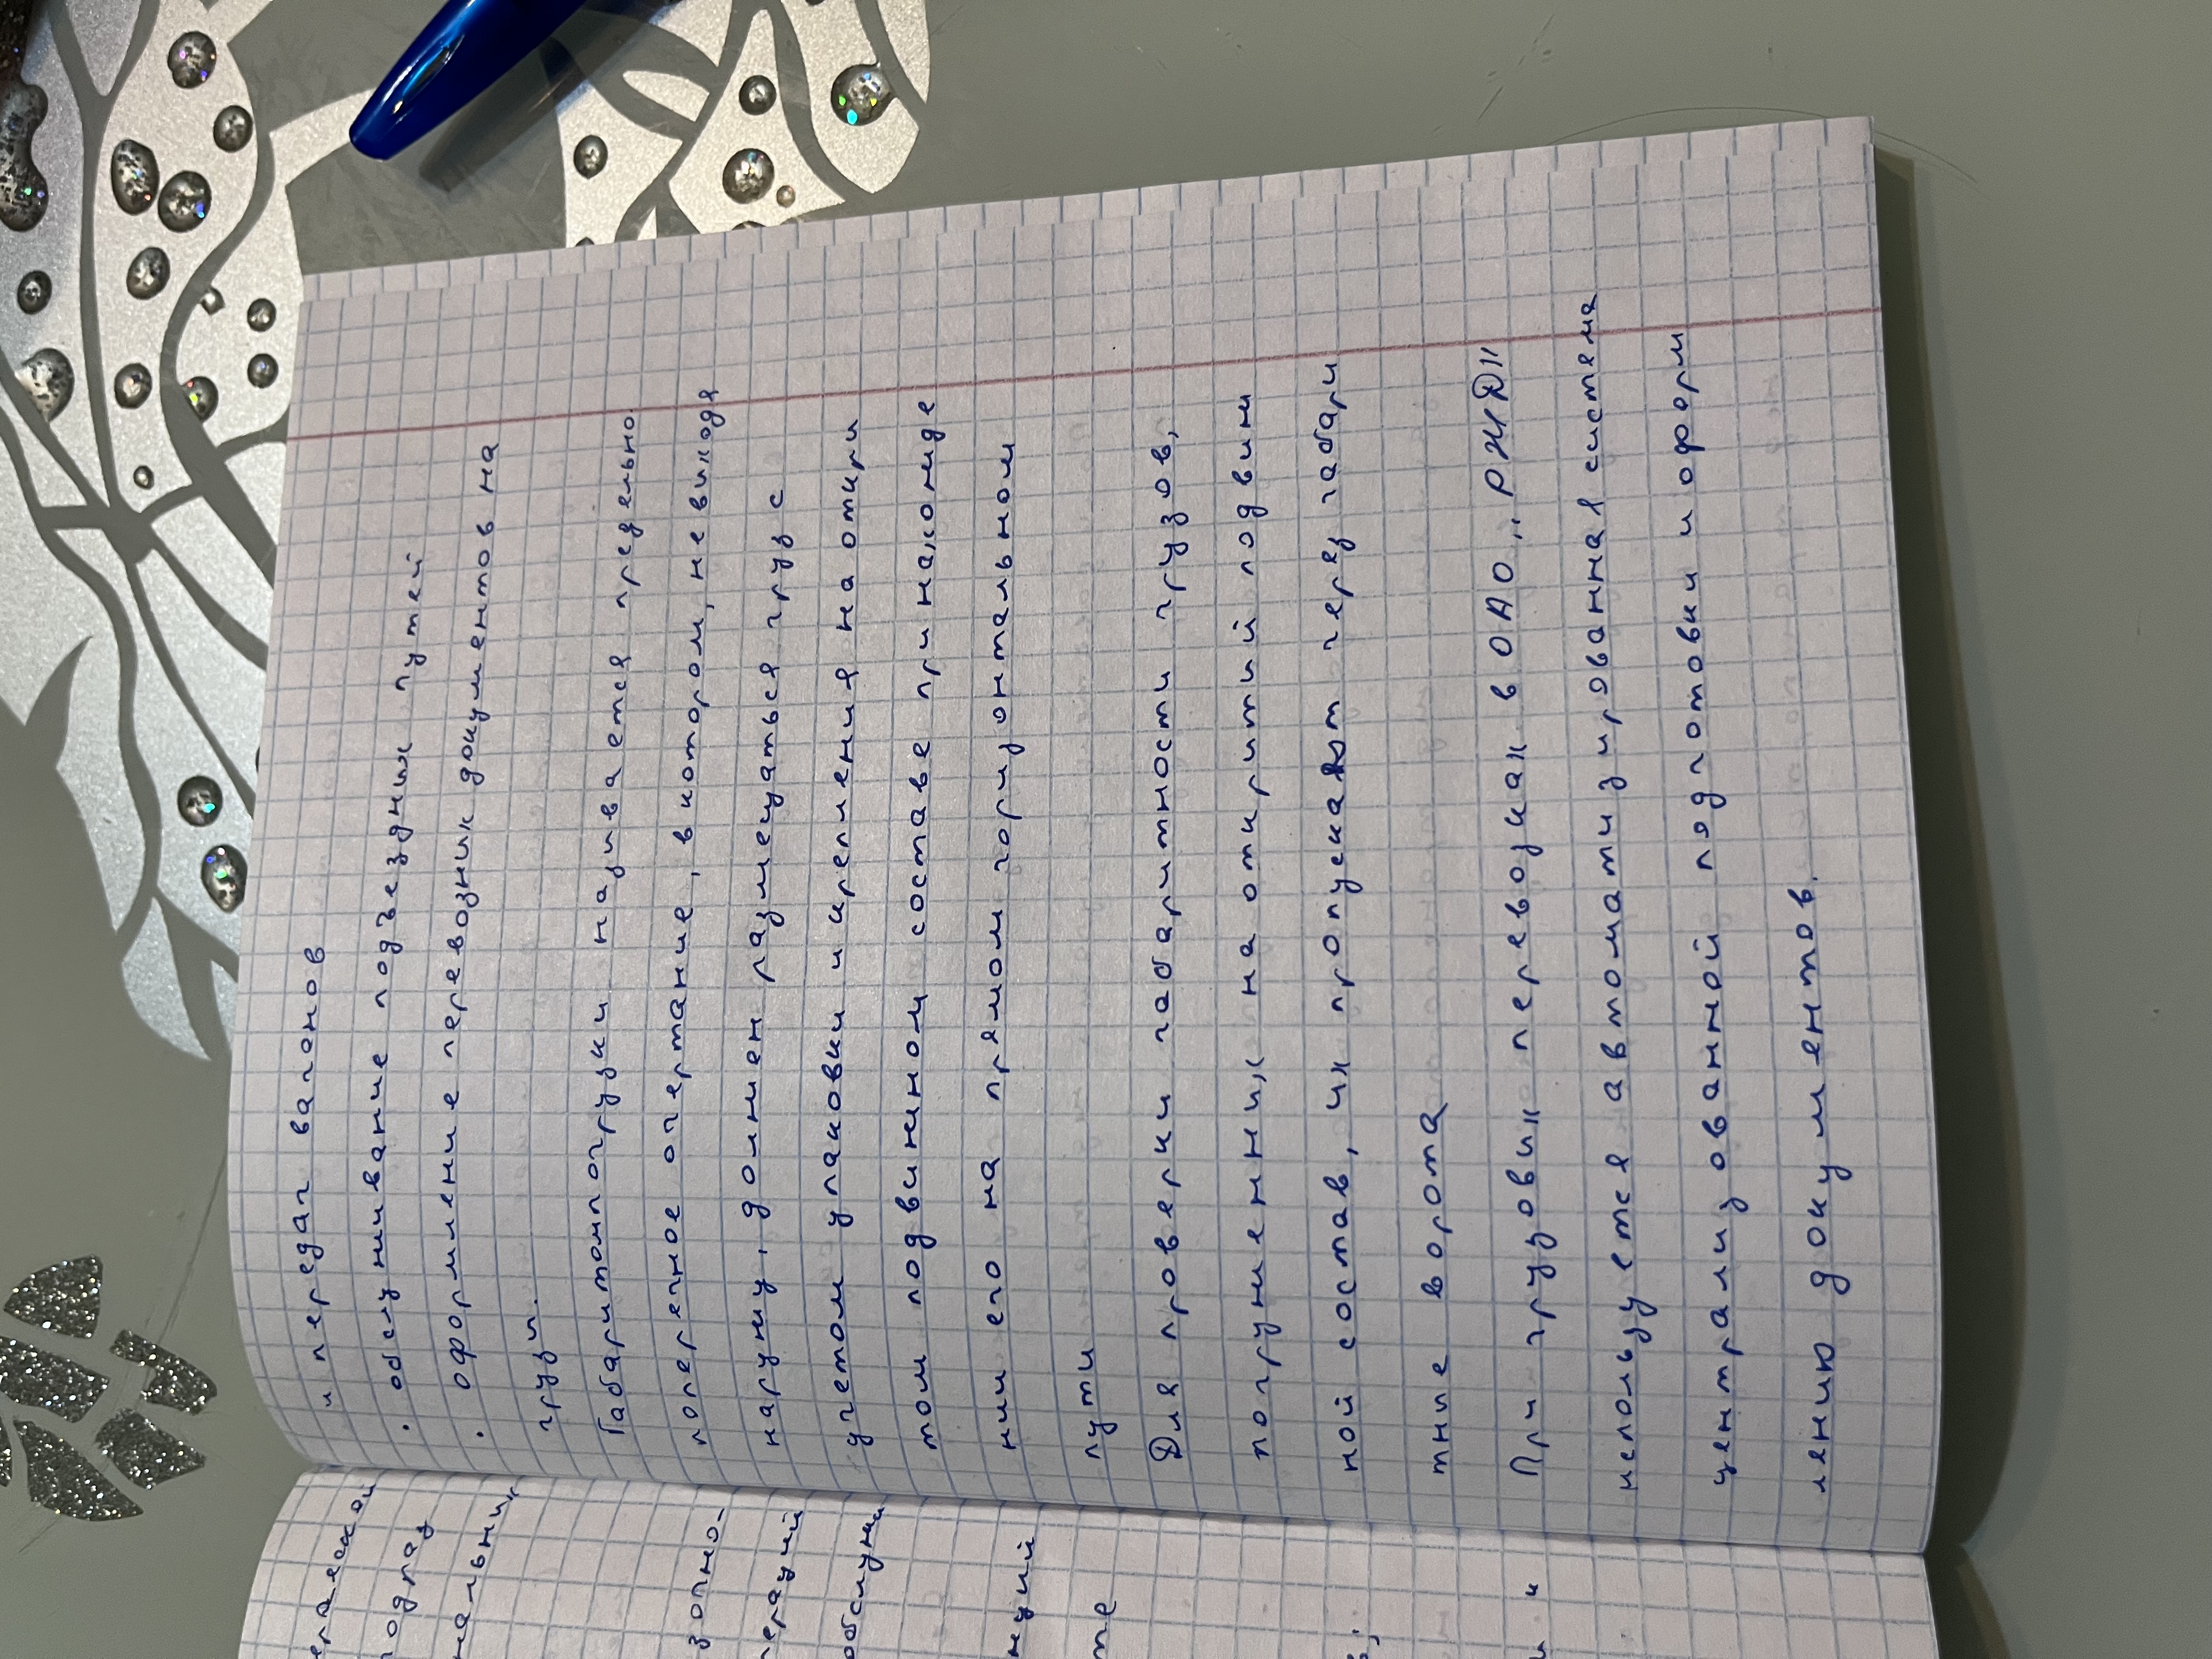 и передач вагонов
· обслуживание подъездных путей
· оформление перевозных документов на
грузы.
Габаритом погрузки называется предельно.
поперечное очертание, в котором, не выходя
наружу, должен размещаться груз с
учетом упаковки и крепления на откры
том подвижном составе при находже
нии его на прямом горизонтальном
пути
Для проверки габаритности грузов,
погруженных на открытый подвиж
ной состав, их пропускают через габари
тные ворота
При грузовых перевозках в ОАО „РЖД"
используется автоматизированная система
централизованной подготовки и оформ
лению документов.